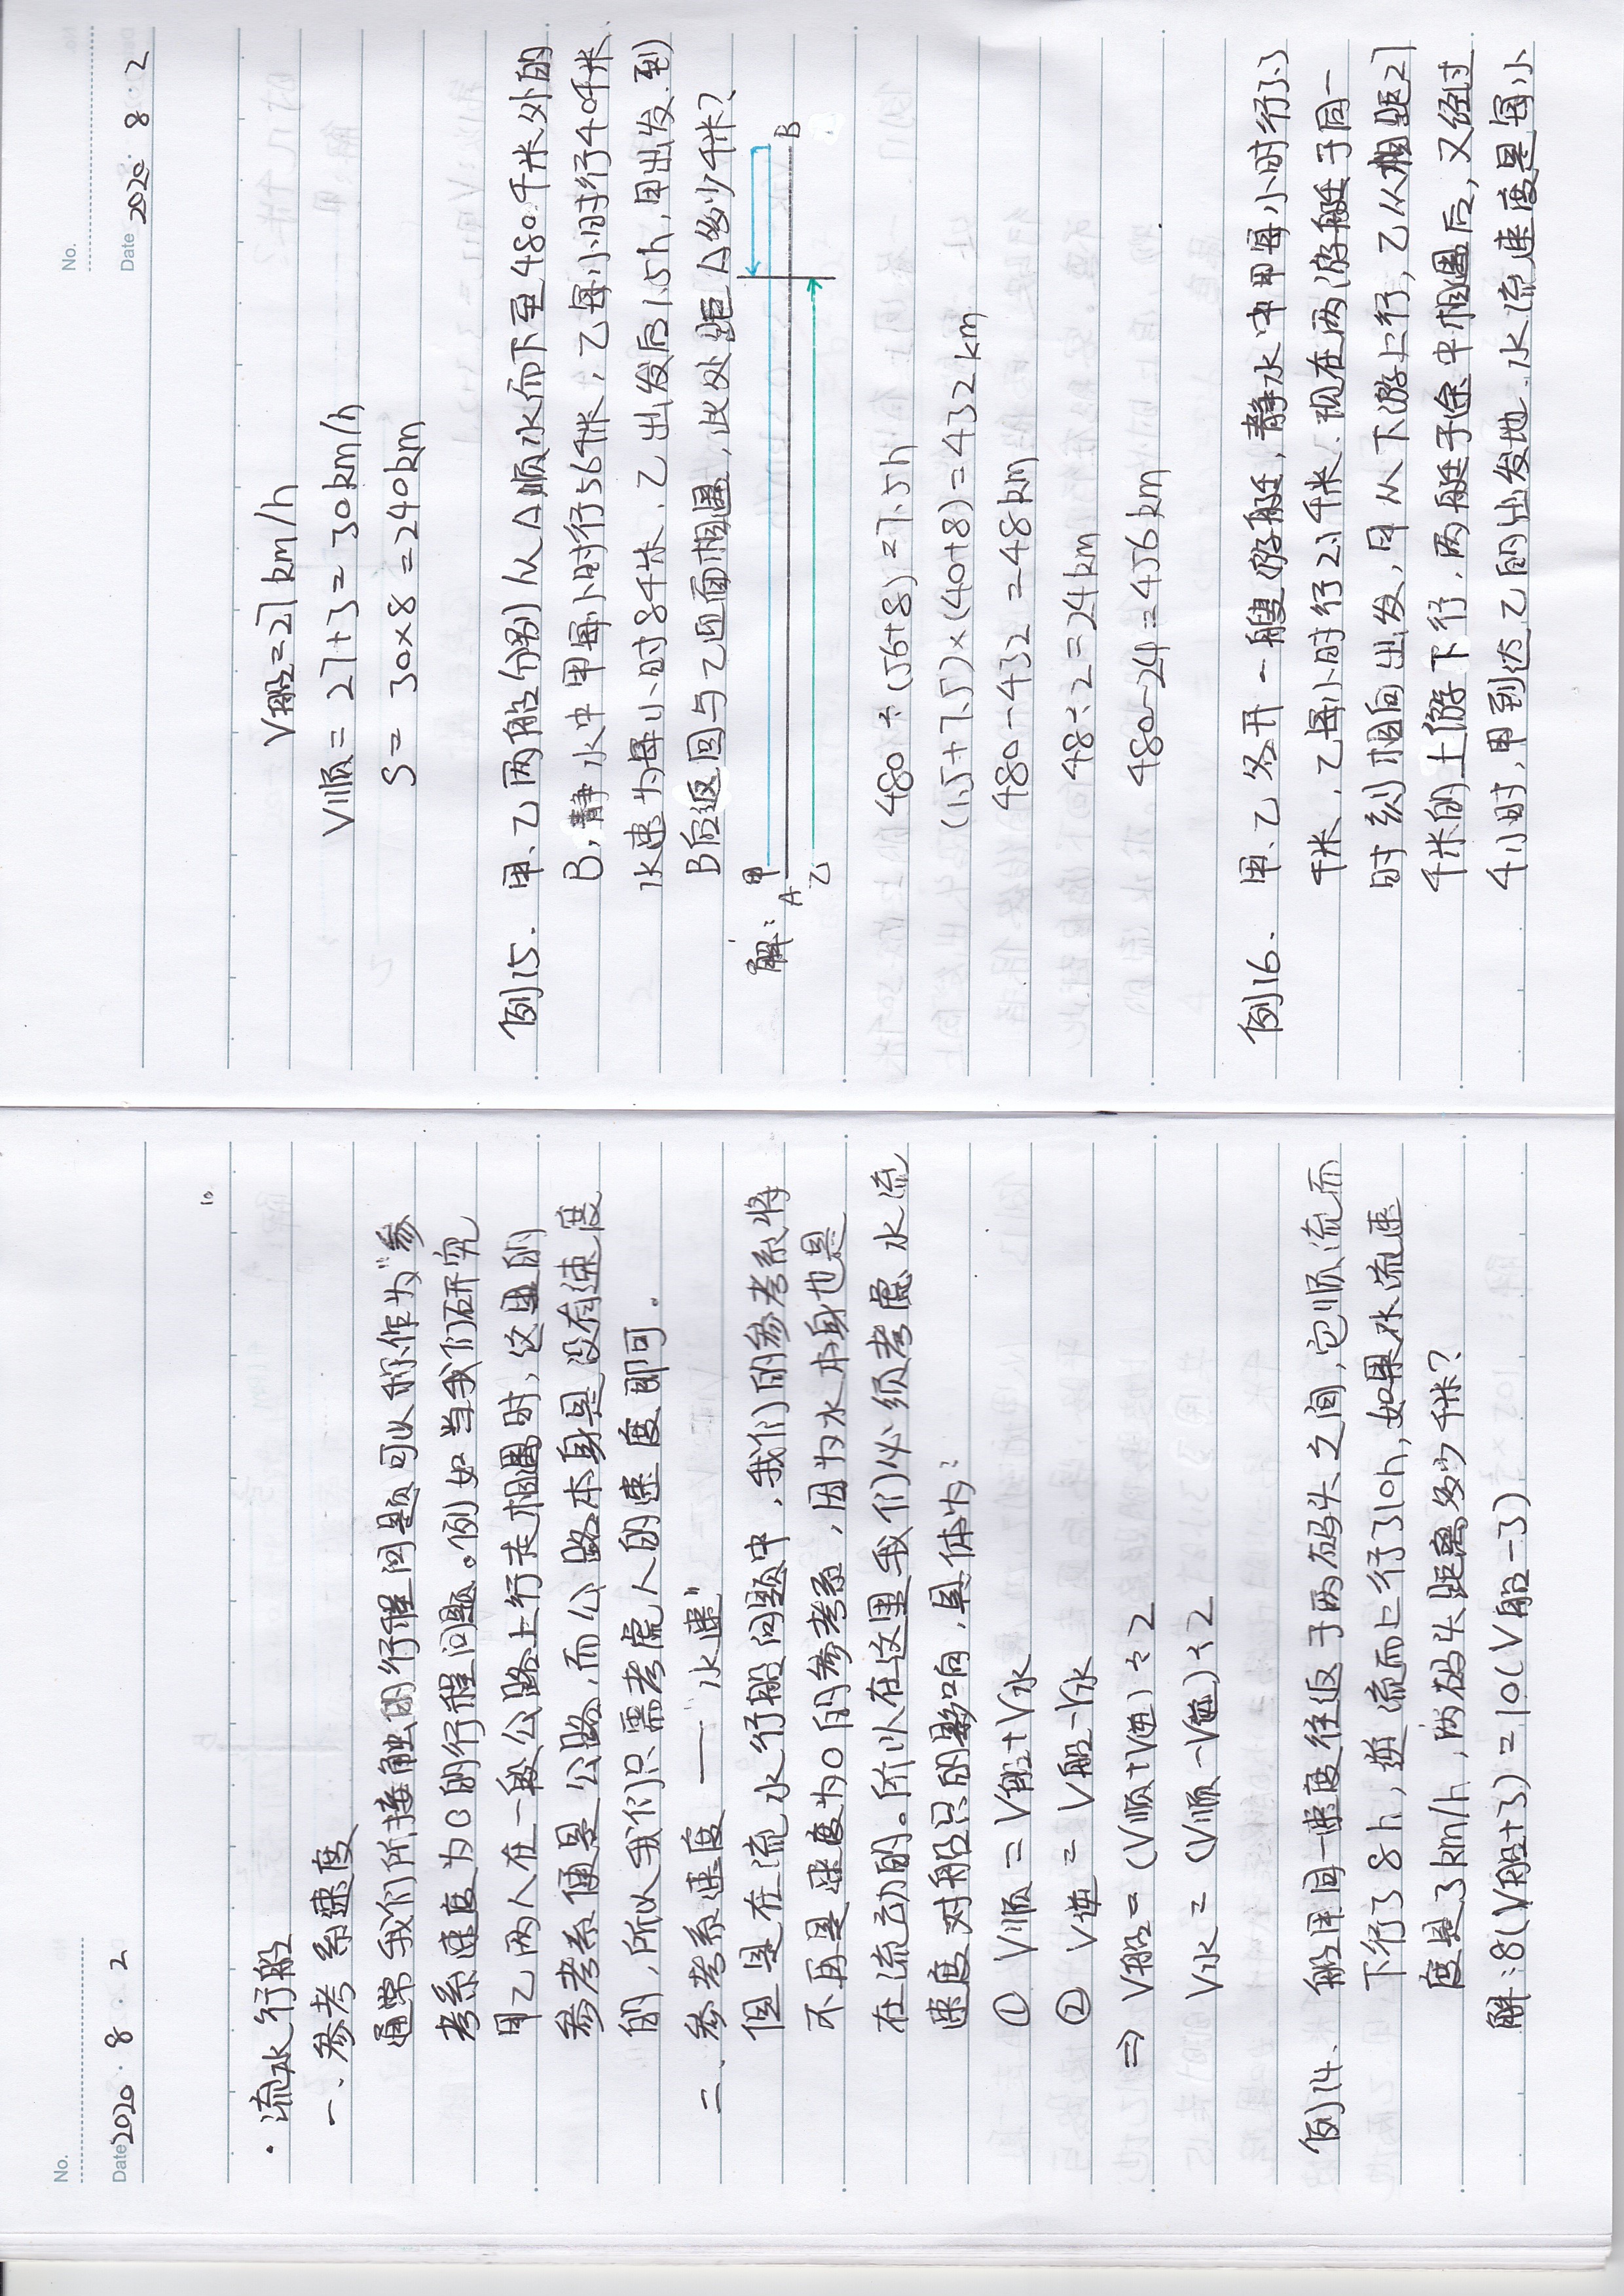 No.
Date 2020 · 8 · 2
10
· 流水行船
一. 参考系速度
通常我们所接触的行程问题可以称作为"参
考系速度为0的行程问题。例如当我们研究
甲乙两人在一段公路上行走相遇时，这里的
参考系便是公路，而公路本身是没有速度
的，所以我们只需考虑人的速度即可。
二. 参考系速度 ——"水速"
但是在流水行船问题中，我们的参考系将
不再是速度为0的参考系，因为水本身也是
在流动的。所以在这里我们必须考虑水流
速度对船只的影响，具体为：
① V顺 = V船+V水
② V逆 = V船-V水
⇒ V船 = (V顺+V逆)÷2
V水 = (V顺-V逆)÷2
例14. 船用同一速度往返于两码头之间，它顺流而
下行了8h，逆流而上行了10h，如果水流速
度是3km/h，两码头距离多少千米？
解：8(V船+3)=10(V船-3)
No.
Date 2020 8 · 2
V船=27km/h
V顺= 27+3=30km/h
S= 30×8=240km
例15. 甲、乙两船分别从A顺水而下至480千米外的
B，静水中甲每小时行56千米，乙每小时行40千米.
水速为每小时8千米. 乙出发后1.5h，甲出发.到
B后返回与乙迎面相遇，此处距A多少千米？
解：
甲
A
B
乙
480÷(56+8)=7.5h
(1.5+7.5)×(40+8)=432km
480-432=48km
48÷2=24km
480-24=456km
例16. 甲、乙各开一艘游艇，静水中甲每小时行3.3
千米，乙每小时行2.1千米. 现在两游艇于同一
时刻相向出发，甲从下游上行，乙从相距27
千米的上游下行，两艇于途中相遇后，又经过
4小时，甲到达乙的出发地. 水流速度是每小